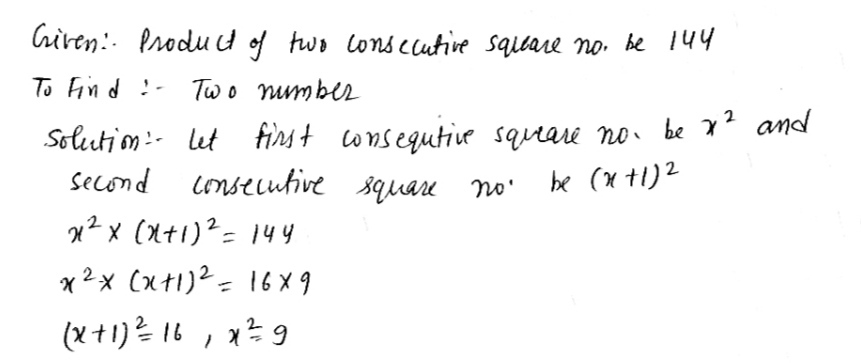 Given:- Product of two consecutive square no. be 144
To Find :- Two number
Solution:- Let first consequtive square no. be x² and
second consecutive square no. be (x+1)²
x² × (x+1)² = 144
x² × (x+1)² = 16 × 9
(x+1)² = 16 , x² = 9